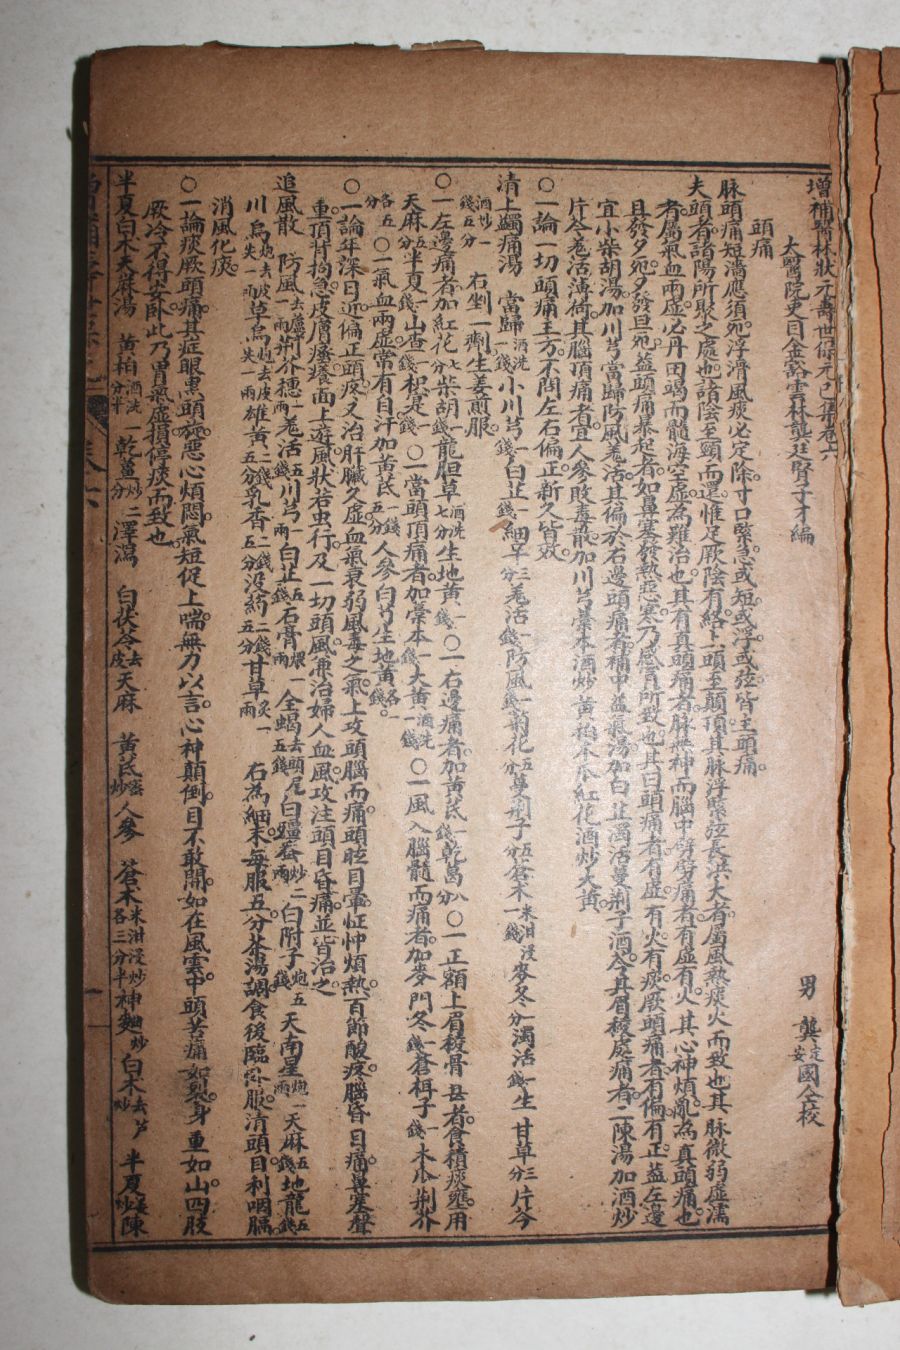 增補醫林狀元壽世保元己集卷六
太醫院吏目金谿雲林龔廷賢子才編
男 龔定安國仝校
頭痛
脉頭痛短濇應須死浮滑風痰必定除寸口緊急或短或浮或弦皆主頭痛
夫頭者諸陽所聚之處也諸陰至頸而還惟足厥陰有絡上頭至顛頂其脉浮緊弦長洪大者屬風熱痰火而致也其脉微弱虛濡
者屬氣血兩虛必丹田竭而髓海空虛為難治也其有真頭痛者脉無神而腦中劈劈痛者有虛有火其心神煩亂為真頭痛也
旦發夕死夕發旦死蓋頭痛暴起者如鼻塞發熱惡寒乃感冒所致也其曰頭痛者有虛有火有痰厥頭痛者有偏有正蓋左邊
宜小柴胡湯加川芎當歸防風羗活其偏於右邊頭痛者補中益氣湯加白芷獨活蔓荊子酒芩其眉稜處痛者二陳湯加酒炒
片芩羗活薄荷其腦頂痛者宜人參敗毒散加川芎藁本酒炒黃栢木瓜紅花酒炒大黃
○一論一切頭痛主方不問左右偏正新久皆效
清上蠲痛湯 當歸酒洗一錢小川芎一錢白芷一錢細辛三分羗活一錢防風一錢菊花五分蔓荊子五分蒼朮米泔浸一錢麥冬一分獨活一錢生甘草三分片今
酒炒一錢五 右剉一劑生姜煎服
○一左邊痛者加紅花七分柴胡一錢龍胆草酒洗七分生地黃一錢○一右邊痛者加黃芪一錢乾葛八分○一正額上眉稜骨丑者食積痰壅用
天麻五分半夏一錢山查一錢枳是一錢○一當頭頂痛者加藁本一錢大黃酒洗一錢○一風入腦髓而痛者加麥門冬一錢蒼栮子一錢木瓜荊芥
各五分○一氣血兩虛常有自汗加黃芪一錢五分人參白芍生地黃各一錢
○一論年深日近偏正頭疼又治肝臟久虛血氣衰弱風毒之氣上攻頭腦而痛頭眩目暈怔忡煩熱百節酸疼腦昏目痛鼻塞聲
重項背拘急皮膚癢癢面上遊風狀若虫行及一切頭風兼治婦人血風攻注頭目昏痛並皆治之
追風散 防風去蘆一兩荊介穗一兩羗活五錢川芎一兩白芷五錢石膏煨一兩全蝎去頭尾五錢白殭蚕炒二兩白附子炮五錢天南星炮一兩天麻五錢地龍五錢
川烏炮去皮一兩草烏炮去皮失一兩雄黃二錢五分乳香二錢五分没葯二錢五分甘草炙一兩 右為細末每服五分茶湯調食後臨卧服清頭目利咽膈
消風化痰
○一論痰厥頭痛其症眼黑頭旋惡心煩悶氣短促上喘無力以言心神顛倒目不敢開如在風雲中頭苦痛如裂身重如山四肢
厥冷不得安卧此乃胃氣虛損停痰而致也
半夏白朮天麻湯 黃栢酒洗一分半乾薑炒二分澤瀉 白茯苓去皮天麻 黃芪蜜炒人參 蒼朮米泔浸炒各三分半神麯炒白朮去芦炒 半夏姜炒陳